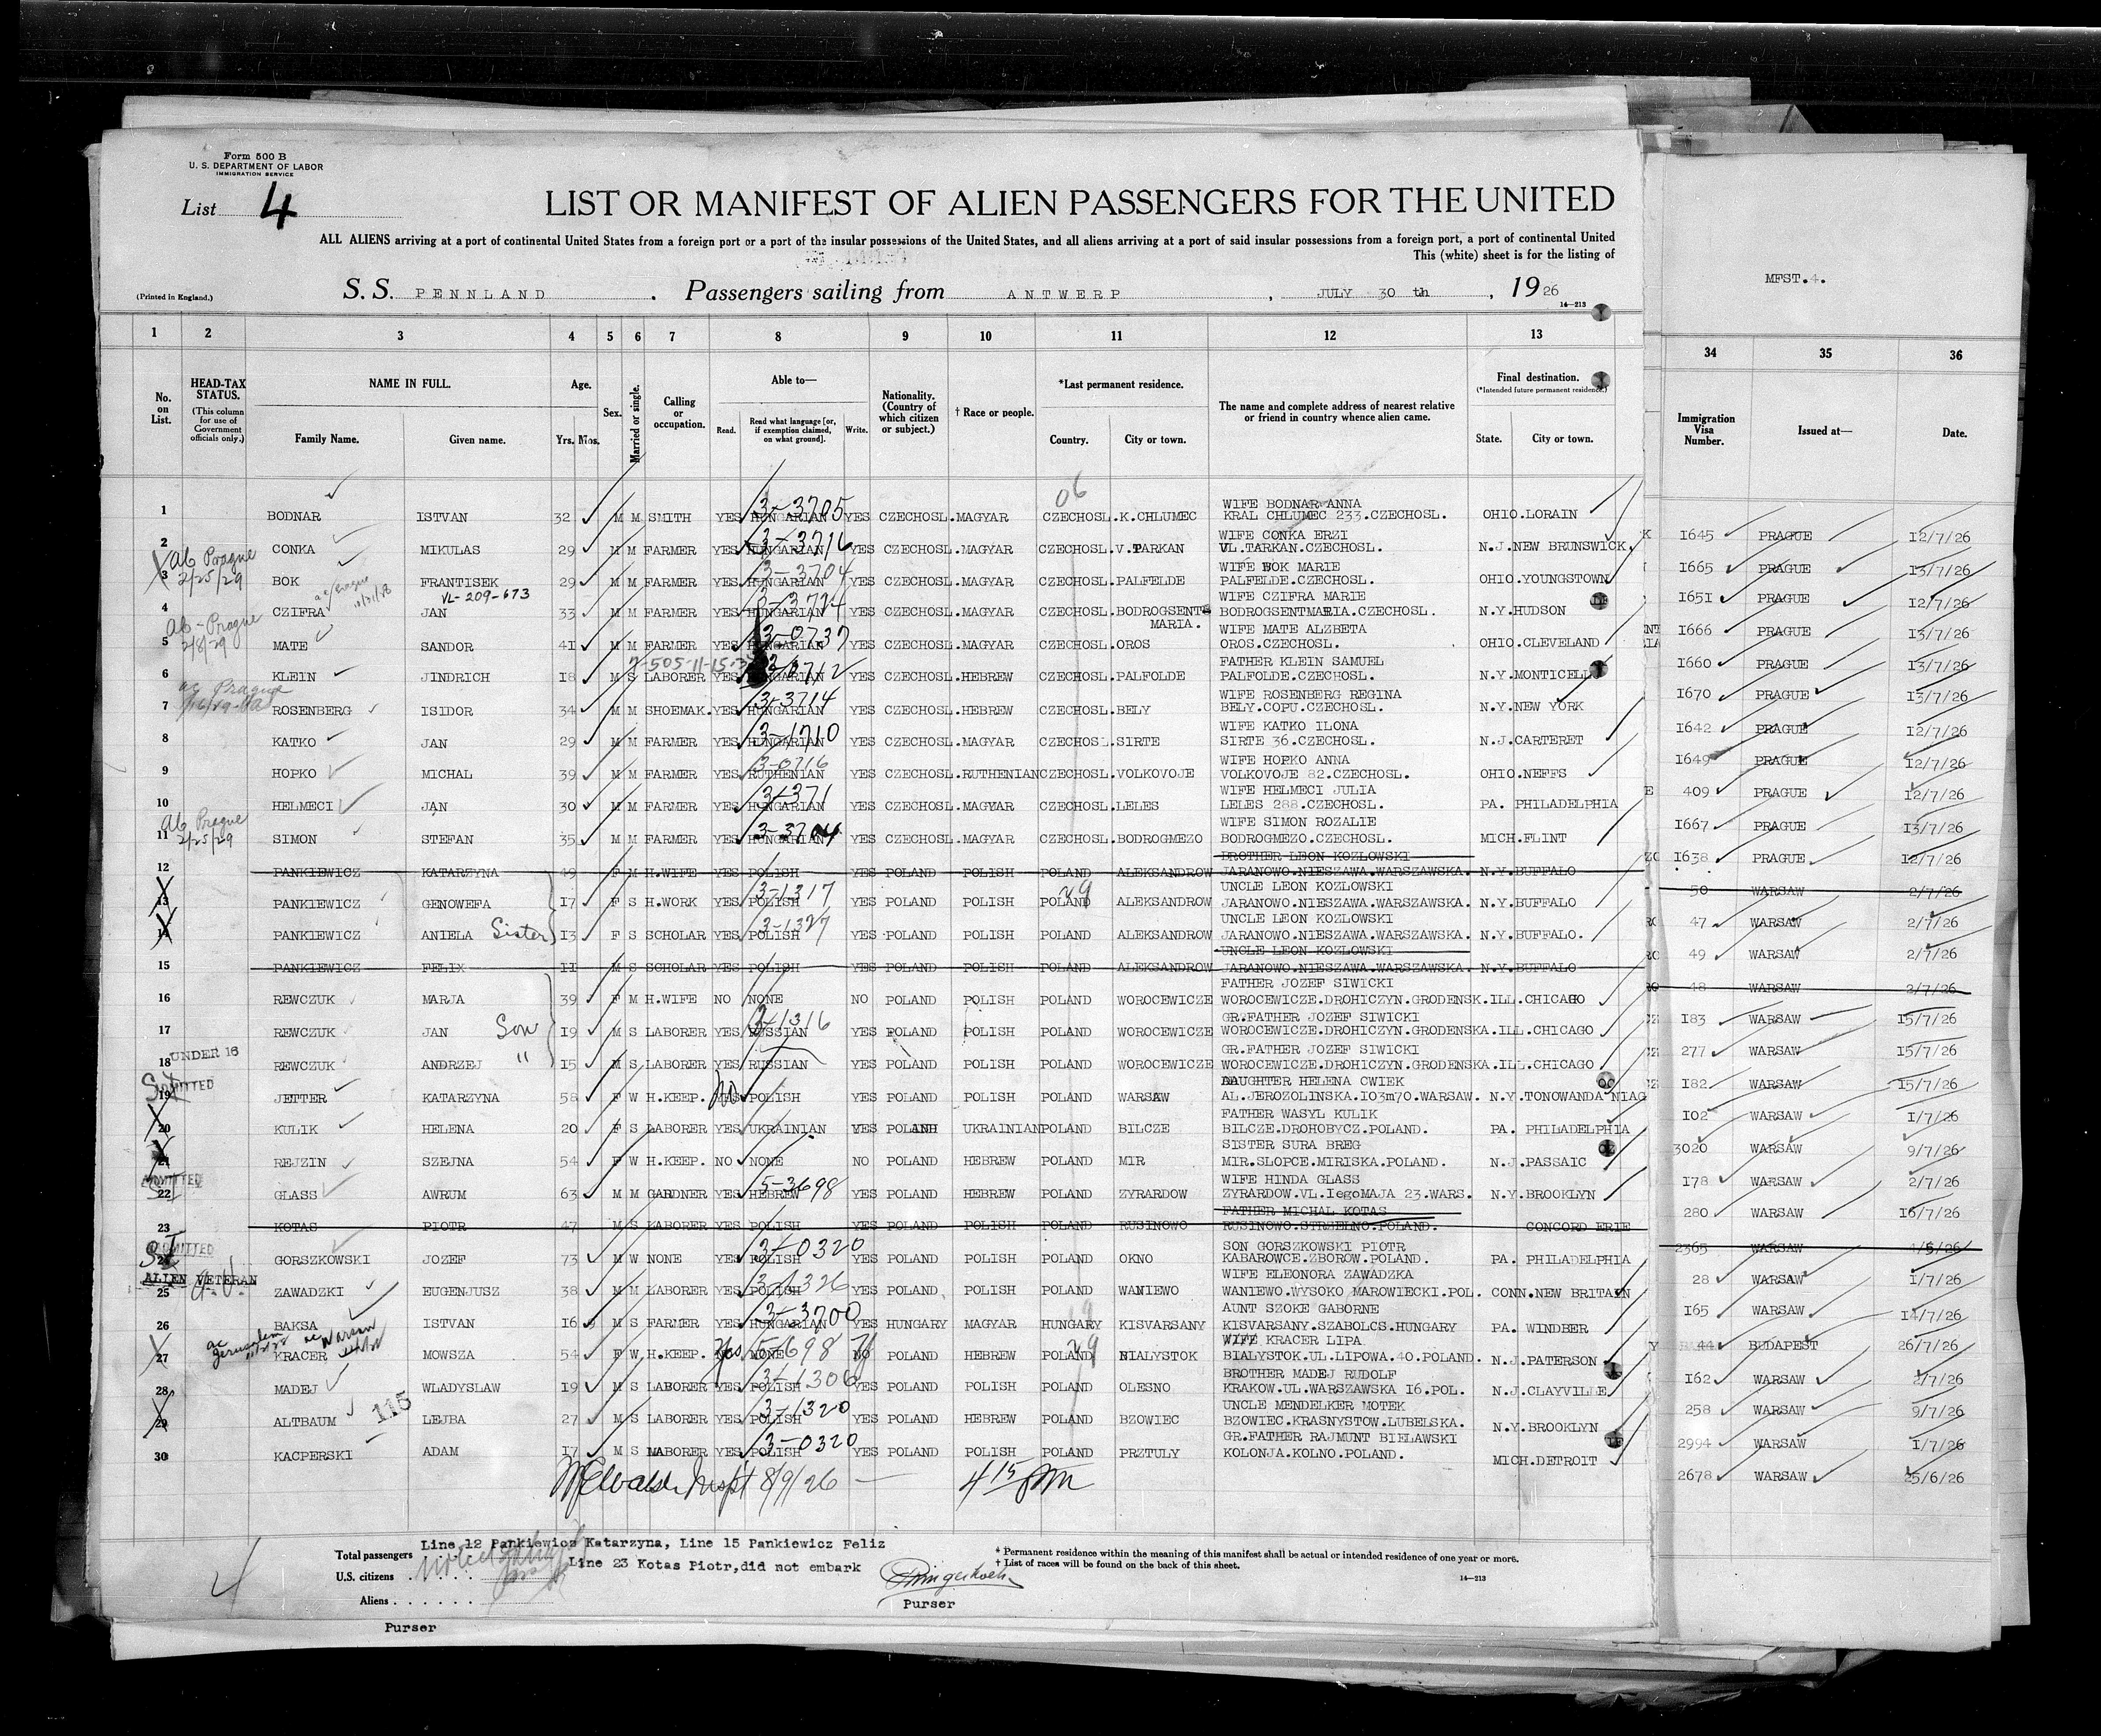 Form 500 B
U. S. DEPARTMENT OF LABOR
IMMIGRATION SERVICE
List 4
LIST OR MANIFEST OF ALIEN PASSENGERS FOR THE UNITED
ALL ALIENS arriving at a port of continental United States from a foreign port or a port of the insular possessions of the United States, and all aliens arriving at a port of said insular possessions from a foreign port, a port of continental United
This (white) sheet is for the listing of
(Printed in England.)
S. S. PENNLAND . Passengers sailing from ANTWERP , JULY 30 th , 19 26
14—213
MFST.4.
1 2 3 4 5 6 7 8 9 10 11 12 13 34 35 36
No. on List.
HEAD-TAX STATUS.
(This column for use of Government officials only.)
NAME IN FULL.
Family Name. Given name.
Age.
Yrs. Mos.
Sex.
Married or single.
Calling or occupation.
Able to—
Read. Read what language [or, if exemption claimed, on what ground]. Write.
Nationality. (Country of which citizen or subject.)
† Race or people.
*Last permanent residence.
Country. City or town.
The name and complete address of nearest relative or friend in country whence alien came.
Final destination.
(*Intended future permanent residence.)
State. City or town.
Immigration Visa Number.
Issued at—
Date.
06
WIFE BODNAR ANNA
1 BODNAR ISTVAN 32 M M SMITH YES HUNGARIAN 3-3705 YES CZECHOSL. MAGYAR CZECHOSL. K.CHLUMEC KRAL CHLUMEC 233.CZECHOSL. OHIO. LORAIN 1645 PRAGUE 12/7/26
WIFE CONKA ERZI
2 CONKA MIKULAS 29 M M FARMER YES HUNGARIAN 3-3716 YES CZECHOSL. MAGYAR CZECHOSL. V.TARKAN VL.TARKAN.CZECHOSL. N.J. NEW BRUNSWICK. 1665 PRAGUE 13/7/26
ab Prague 2/25/29
WIFE BOK MARIE
3 BOK FRANTISEK 29 M M FARMER YES HUNGARIAN 3-3704 YES CZECHOSL. MAGYAR CZECHOSL. PALFELDE PALFELDE.CZECHOSL. OHIO. YOUNGSTOWN 1651 PRAGUE 12/7/26
VL-209-673
WIFE CZIFRA MARIE
4 CZIFRA JAN 33 M M FARMER YES HUNGARIAN YES CZECHOSL. MAGYAR CZECHOSL. BODROGSENT MARIA. BODROGSENTMARIA.CZECHOSL. N.Y. HUDSON 1666 PRAGUE 13/7/26
ab-Prague 2/8/29
WIFE MATE ALZBETA
5 MATE SANDOR 41 M M FARMER YES HUNGARIAN 3-0737 YES CZECHOSL. MAGYAR CZECHOSL. OROS OROS.CZECHOSL. OHIO. CLEVELAND 1660 PRAGUE 13/7/26
FATHER KLEIN SAMUEL
6 KLEIN JINDRICH 18 M S LABORER YES HUNGARIAN YES CZECHOSL. HEBREW CZECHOSL. PALFOLDE PALFOLDE.CZECHOSL. N.Y. MONTICELL 1670 PRAGUE 13/7/26
ac Prague
WIFE ROSENBERG REGINA
7 ROSENBERG ISIDOR 34 M M SHOEMAK. YES HUNGARIAN 3-3714 YES CZECHOSL. HEBREW CZECHOSL. BELY BELY.COPU.CZECHOSL. N.Y. NEW YORK 1642 PRAGUE 12/7/26
WIFE KATKO ILONA
8 KATKO JAN 29 M M FARMER YES HUNGARIAN 3-1710 YES CZECHOSL. MAGYAR CZECHOSL. SIRTE SIRTE 36.CZECHOSL. N.J. CARTERET 1649 PRAGUE 12/7/26
WIFE HOPKO ANNA
9 HOPKO MICHAL 39 M M FARMER YES RUTHENIAN 3-0716 YES CZECHOSL. RUTHENIAN CZECHOSL. VOLKOVOJE VOLKOVOJE 82.CZECHOSL. OHIO. NEFFS 409 PRAGUE 12/7/26
WIFE HELMECI JULIA
10 HELMECI JAN 30 M M FARMER YES HUNGARIAN 3-371 YES CZECHOSL. MAGYAR CZECHOSL. LELES LELES 288.CZECHOSL. PA. PHILADELPHIA 1667 PRAGUE 13/7/26
ab Prague 2/25/29
WIFE SIMON ROZALIE
11 SIMON STEFAN 35 M M FARMER YES HUNGARIAN 3-3704 YES CZECHOSL. MAGYAR CZECHOSL. BODROGMEZO BODROGMEZO.CZECHOSL. MICH. FLINT 1638 PRAGUE 12/7/26
BROTHER LEON KOZLOWSKI
12 PANKIEWICZ KATARZYNA 49 F M H.WIFE YES POLISH YES POLAND POLISH POLAND ALEKSANDROW JARANOWO.NIESZAWA.WARSZAWSKA. N.Y. BUFFALO 50 WARSAW 2/7/26
UNCLE LEON KOZLOWSKI
13 PANKIEWICZ GENOWEFA 17 F S H.WORK YES POLISH 3-1317 YES POLAND POLISH POLAND 29 ALEKSANDROW JARANOWO.NIESZAWA.WARSZAWSKA. N.Y. BUFFALO 47 WARSAW 2/7/26
UNCLE LEON KOZLOWSKI
14 PANKIEWICZ ANIELA Sister 13 F S SCHOLAR YES POLISH 3-1327 YES POLAND POLISH POLAND ALEKSANDROW JARANOWO.NIESZAWA.WARSZAWSKA. N.Y. BUFFALO. 49 WARSAW 2/7/26
UNCLE LEON KOZLOWSKI
15 PANKIEWICZ FELIX 11 M S SCHOLAR YES POLISH YES POLAND POLISH POLAND ALEKSANDROW JARANOWO.NIESZAWA.WARSZAWSKA. N.Y. BUFFALO 48 WARSAW 2/7/26
FATHER JOZEF SIWICKI
16 REWCZUK MARJA 39 F M H.WIFE NO NONE NO POLAND POLISH POLAND WOROCEWICZE WOROCEWICZE.DROHICZYN.GRODENSK. ILL. CHICAGO 183 WARSAW 15/7/26
GR.FATHER JOZEF SIWICKI
17 REWCZUK JAN Son 19 M S LABORER YES RUSSIAN 3-1316 YES POLAND POLISH POLAND WOROCEWICZE WOROCEWICZE.DROHICZYN.GRODENSKA. ILL. CHICAGO 277 WARSAW 15/7/26
UNDER 16
GR.FATHER JOZEF SIWICKI
18 REWCZUK ANDRZEJ " 15 M S LABORER YES RUSSIAN YES POLAND POLISH POLAND WOROCEWICZE WOROCEWICZE.DROHICZYN.GRODENSKA. ILL. CHICAGO 182 WARSAW 15/7/26
ADMITTED
DAUGHTER HELENA CWIEK
19 JETTER KATARZYNA 58 F W H.KEEP. No POLISH YES POLAND POLISH POLAND WARSAW AL.JEROZOLINSKA.103m70.WARSAW. N.Y. TONOWANDA NIAG 102 WARSAW 1/7/26
FATHER WASYL KULIK
20 KULIK HELENA 20 F S LABORER YES UKRAINIAN YES POLAND UKRAINIAN POLAND BILCZE BILCZE.DROHOBYCZ.POLAND. PA. PHILADELPHIA 3020 WARSAW 9/7/26
SISTER SURA BREG
21 REJZIN SZEJNA 54 F W H.KEEP. NO NONE NO POLAND HEBREW POLAND MIR MIR.SLOPCE.MIRISKA.POLAND. N.J. PASSAIC 178 WARSAW 2/7/26
ADMITTED
WIFE HINDA GLASS
22 GLASS AWRUM 63 M M GARDNER YES HEBREW 5-3698 YES POLAND HEBREW POLAND ZYRARDOW ZYRARDOW.VL.IegoMAJA 23.WARS. N.Y. BROOKLYN 280 WARSAW 16/7/26
FATHER MICHAL KOTAS
23 KOTAS PIOTR 47 M S LABORER YES POLISH YES POLAND POLISH POLAND RUSINOWO RUSINOWO.STRSELNO.POLAND. CONCORD ERIE 2365 WARSAW 4/6/26
ADMITTED
SON GORSZKOWSKI PIOTR
24 GORSZKOWSKI JOZEF 73 M W NONE YES POLISH 3-0320 YES POLAND POLISH POLAND OKNO KABAROWCE.ZBOROW.POLAND. PA. PHILADELPHIA 28 WARSAW 1/7/26
ALIEN VETERAN
WIFE ELEONORA ZAWADZKA
25 ZAWADZKI EUGENJUSZ 38 M M LABORER YES POLISH 3-1326 YES POLAND POLISH POLAND WANIEWO WANIEWO.WYSOKO MAROWIECKI.POL. CONN. NEW BRITAIN 165 WARSAW 14/7/26
AUNT SZOKE GABORNE
26 BAKSA ISTVAN 16 M S FARMER YES HUNGARIAN 3-3700 YES HUNGARY MAGYAR HUNGARY KISVARSANY KISVARSANY.SZABOLCS.HUNGARY PA. WINDBER 44 BUDAPEST 26/7/26
ac Jerusalem ac Warsaw
WIFE KRACER LIPA
27 KRACER MOWSZA 54 F W H.KEEP. Yes NONE 5-698 NO POLAND HEBREW POLAND 29 BIALYSTOK BIALYSTOK.UL.LIPOWA.40.POLAND. N.J. PATERSON 162 WARSAW 2/7/26
BROTHER MADEJ RUDOLF
28 MADEJ WLADYSLAW 19 M S LABORER YES POLISH 3-1306 YES POLAND POLISH POLAND OLESNO KRAKOW.UL.WARSZAWSKA 16.POL. N.J. CLAYVILLE 258 WARSAW 9/7/26
UNCLE MENDELKER MOTEK
29 ALTBAUM 115 LEJBA 27 M S LABORER YES POLISH 3-1320 YES POLAND HEBREW POLAND BZOWIEC BZOWIEC.KRASNYSTOW.LUBELSKA. N.Y. BROOKLYN 2994 WARSAW 1/7/26
GR.FATHER RAJMUNT BIELAWSKI
30 KACPERSKI ADAM 17 M S LABORER YES POLISH 3-0320 YES POLAND POLISH POLAND PRZTULY KOLONJA.KOLNO.POLAND. MICH. DETROIT 2678 WARSAW 25/6/26
Inspt 8/9/26 — 4 15 pm
Line 12 Pankiewicz Katarzyna, Line 15 Pankiewicz Feliz
Line 23 Kotas Piotr,did not embark
Total passengers
U.S. citizens
Aliens
Purser
4
Purser
* Permanent residence within the meaning of this manifest shall be actual or intended residence of one year or more.
† List of races will be found on the back of this sheet.
14—213